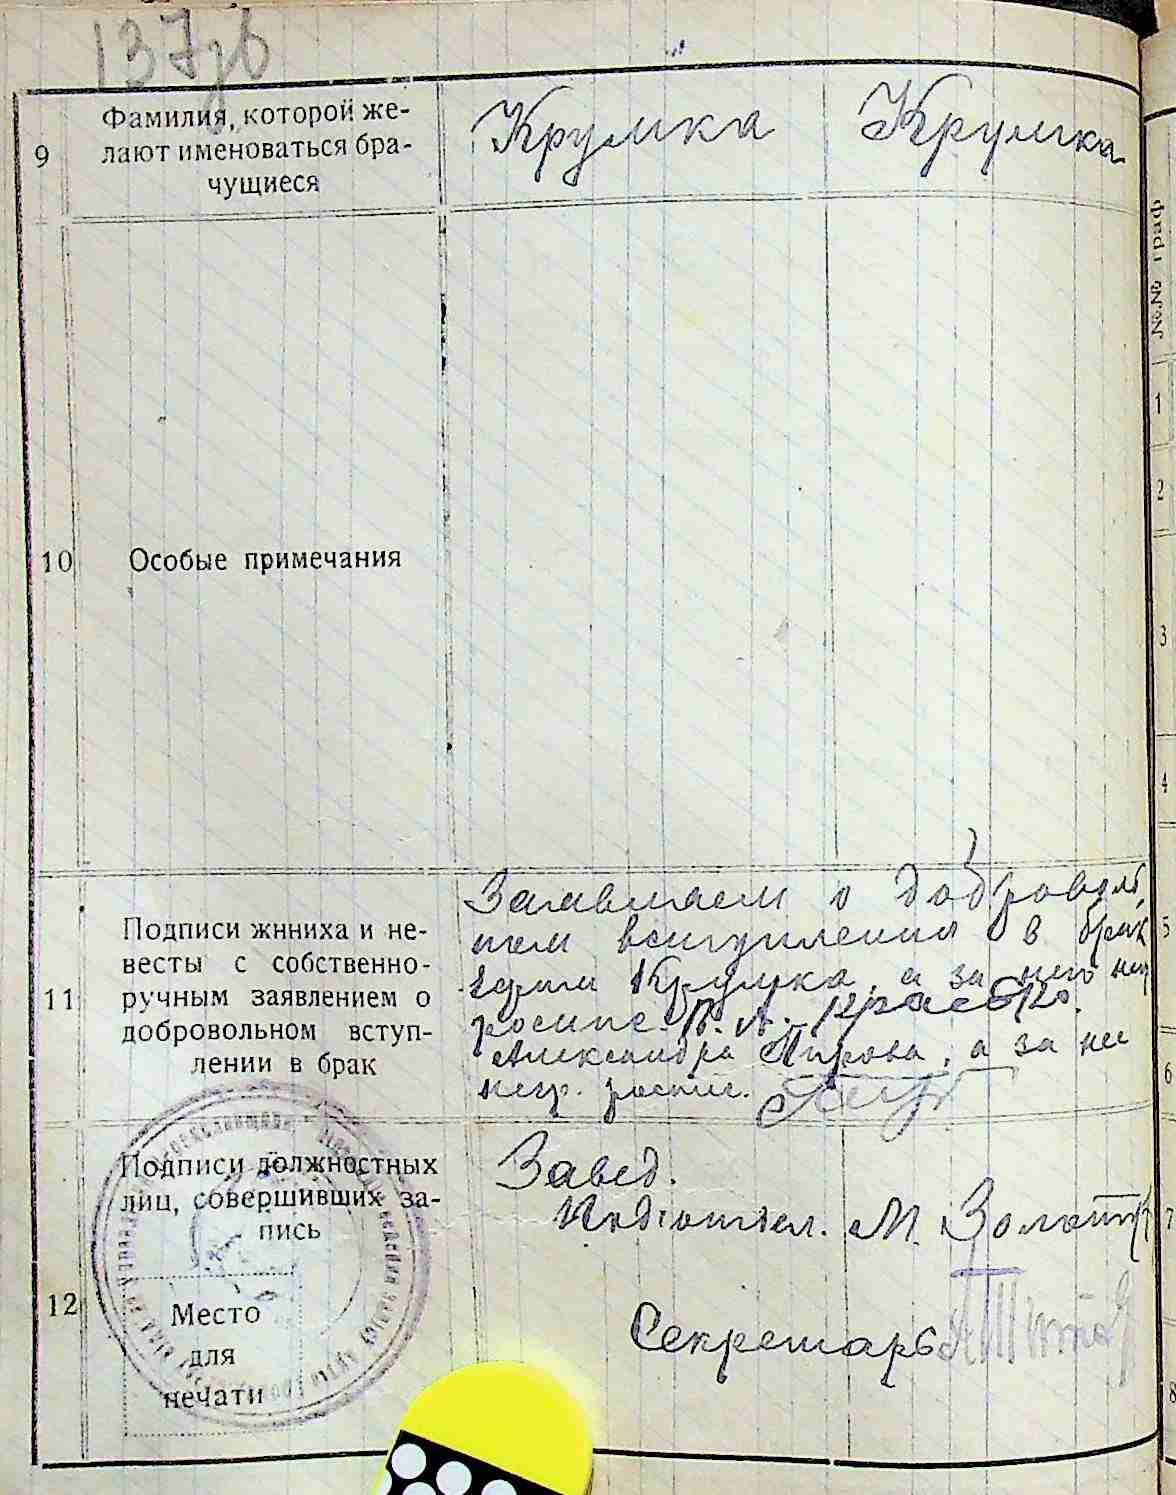 137об
9
Фамилия, которой же-
лают именоваться бра-
чущиеся
Крумка Крумка
10
Особые примечания
11
Подписи жнниха и не-
весты с собственно-
ручным заявлением о
добровольном вступ-
лении в брак
Заявляем о доброволь
ном вступлении в брак
Крумка, а за него негр
роспис. П. А. Красько.
Александра Пирова, а за нее
негр. роспис.
12
Подписи должностных
лиц, совершивших за-
пись
Место
для
печати
Завед.
М. Золот
Секретарь
№№ граф
1
2
3
4
5
6
7
8